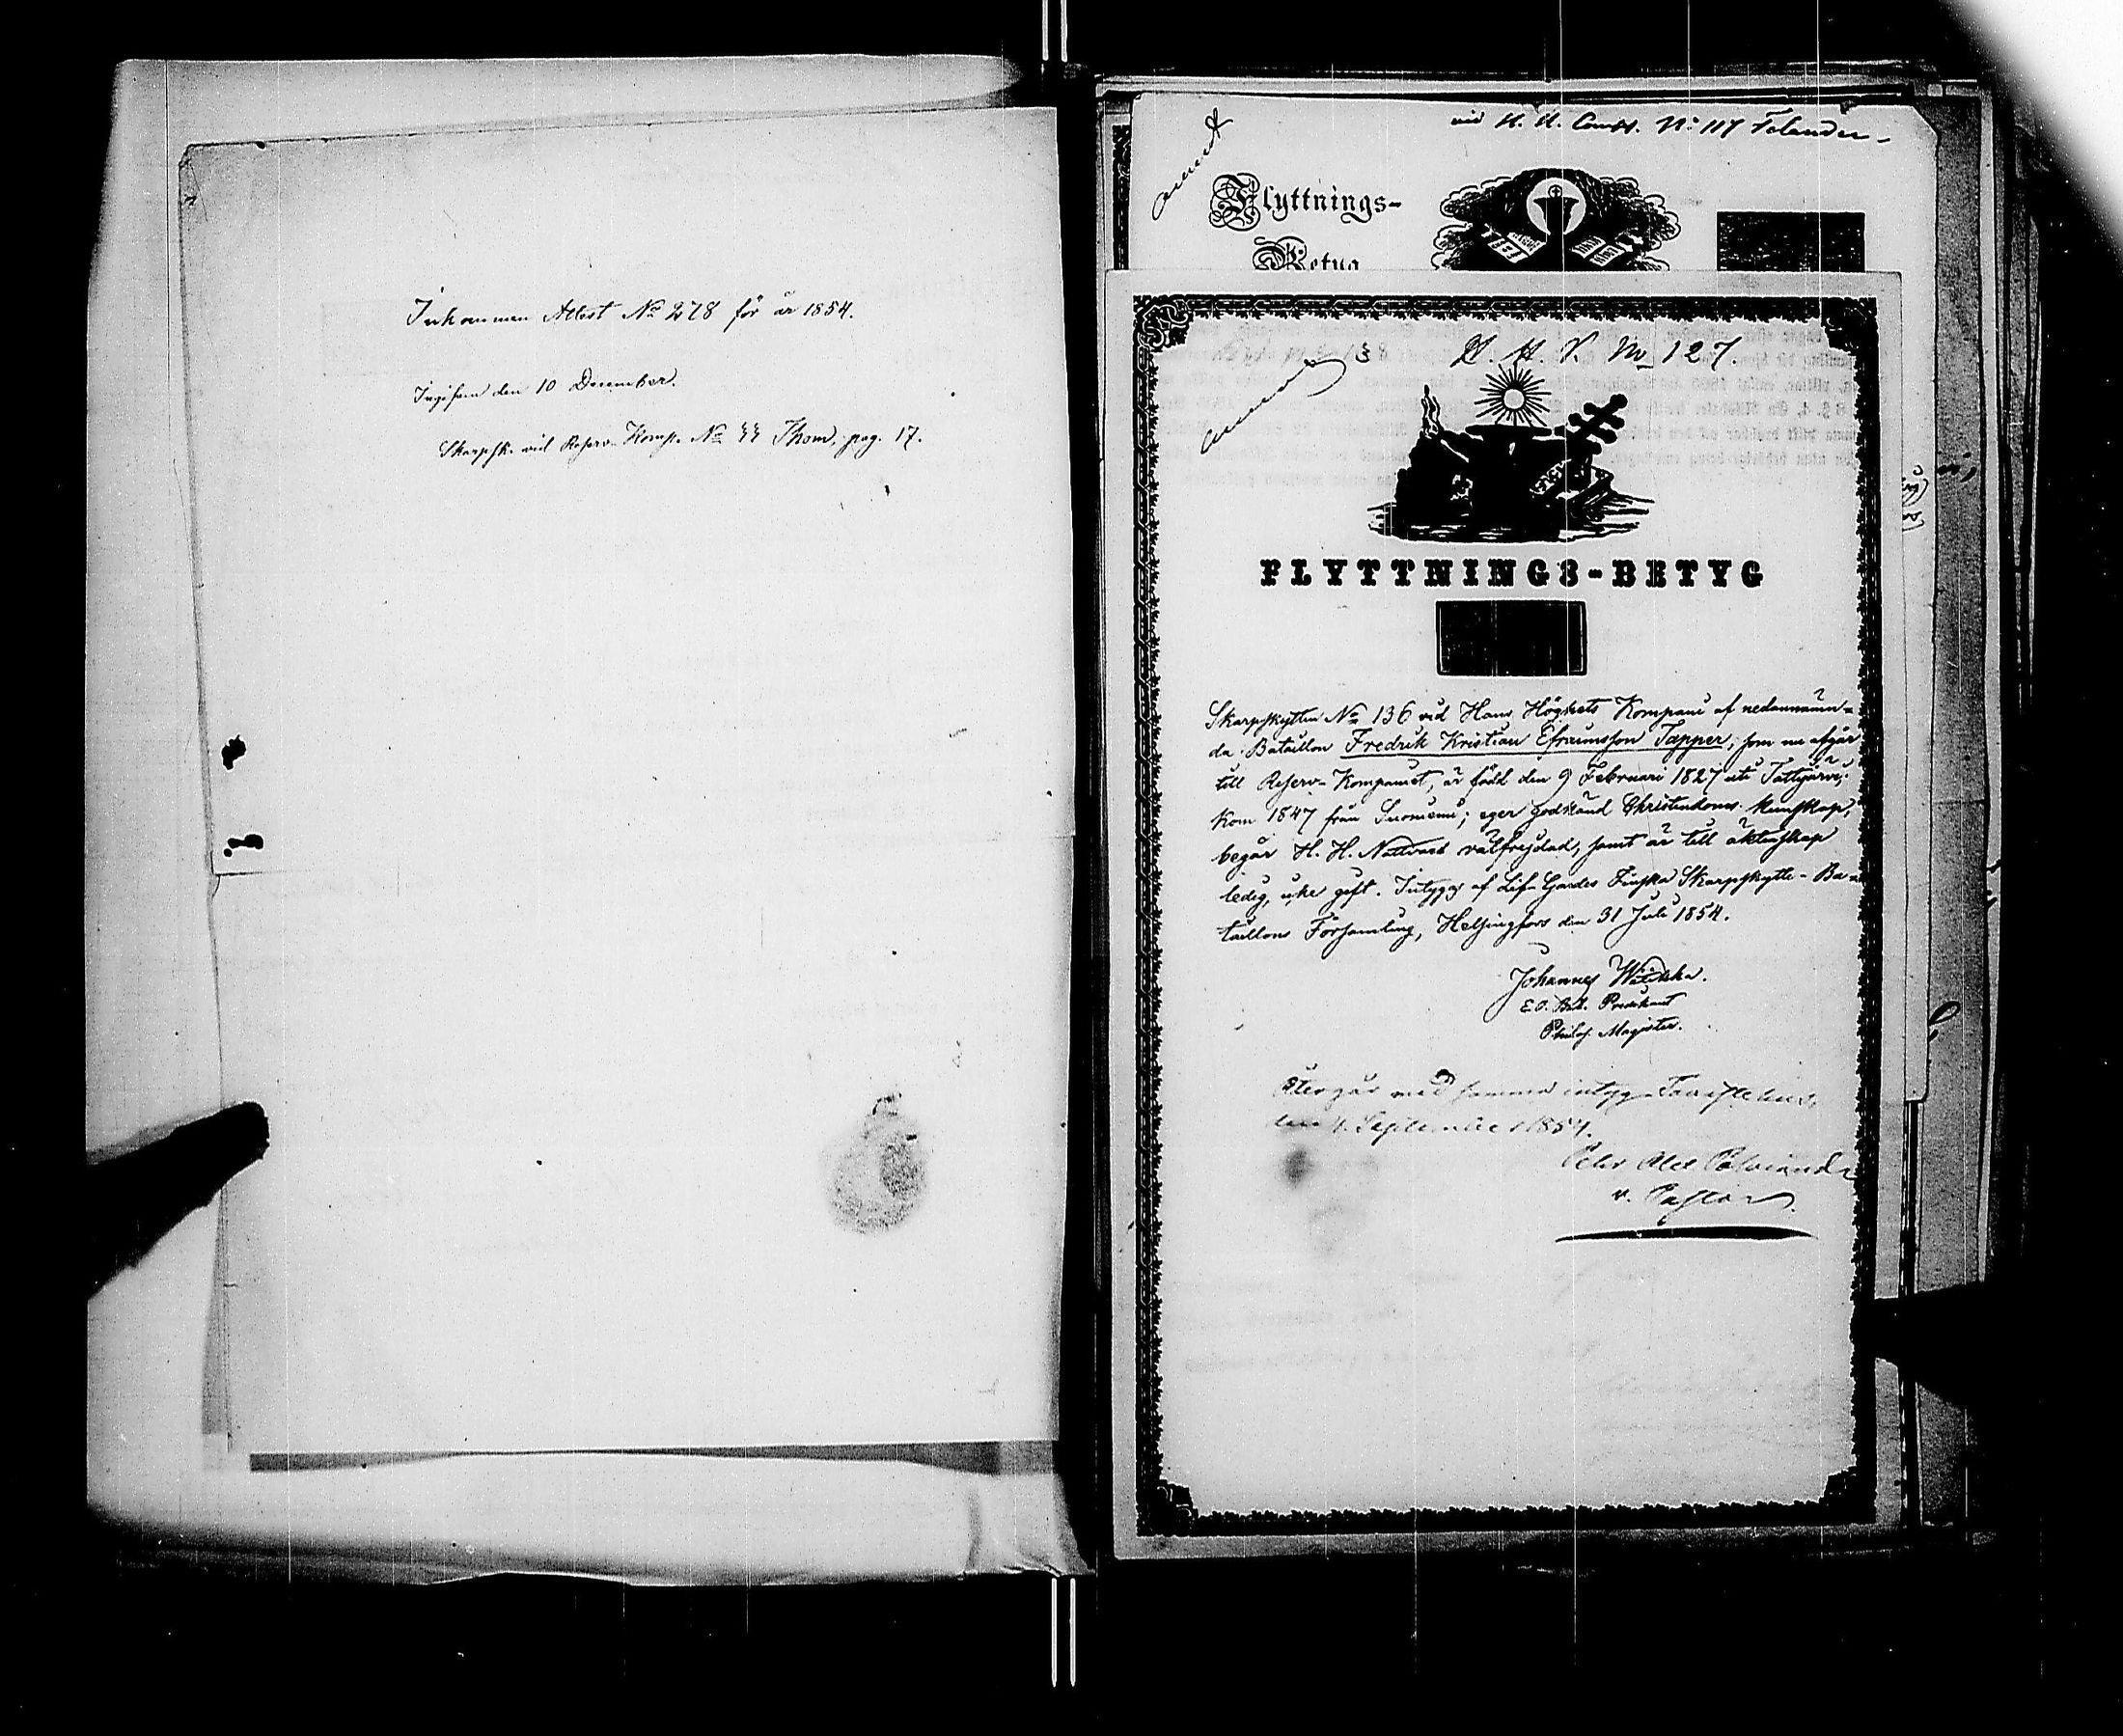 Inkommen Attest No 278 för år 1854.
Ingifven den 10 December.
Skarpsk. vid Reserv-Komp. No 44 Thom, pag. 17.
vid H. H. Comp. No 117 Felander
Flyttnings-
Betyg
H. H. No 127.
FLYTTNINGS-BETYG
Skarpskytten No 136 vid Hans Höghets Kompani af nedannämn-
da Bataillon Fredrik Kristian Efraimsson Tapper, som nu afgår
till Reserv-Kompaniet, är född den 9 Februari 1827 uti Tattijärvi;
kom 1847 från Suoniemi; eger godkänd Christendoms kunskap,
begår H. H. Nattvard välfrejdad, samt är till äktenskap
ledig, icke gift. Intygas af Lif-Gardes Finska Skarpskytte-Ba-
taillons Församling, Helsingfors den 31 Juli 1854.
Johannes
E. O. Bat. Predikant
Philos. Magister.
Återgår med samma intyg. Tavastehus,
den 4 September 1854.
Pehr Alex
v. Pastor